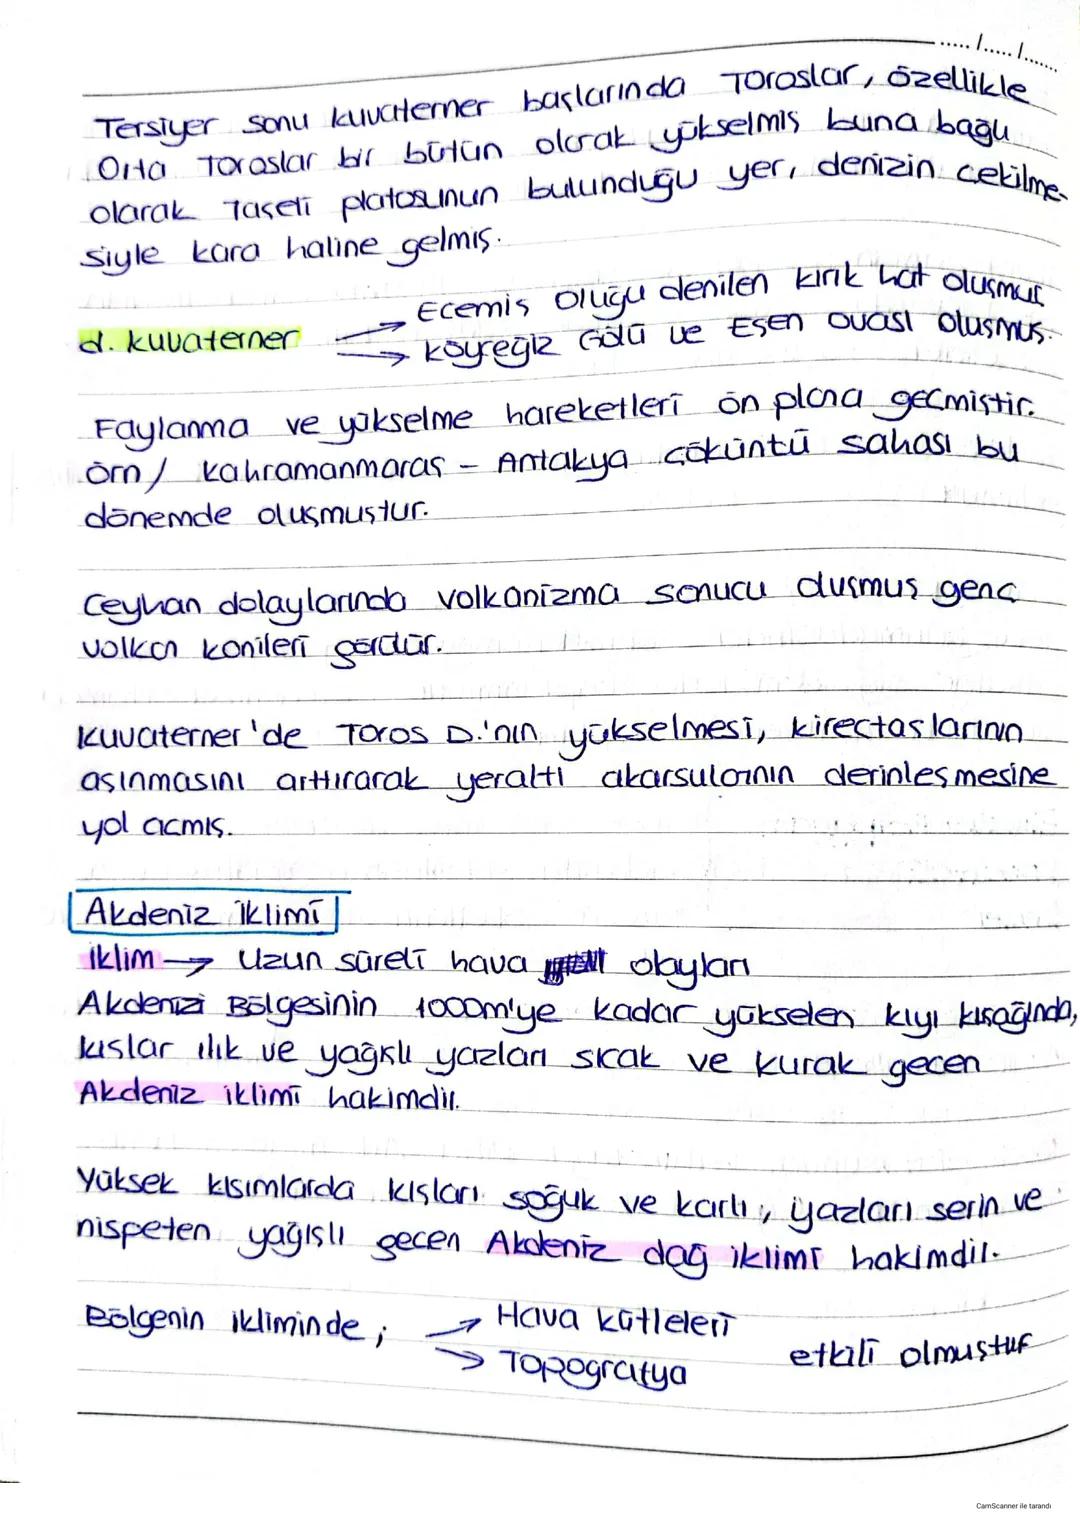 ...../...../.......
Tersiyer sonu kuvaterner başlarında Toroslar, özellikle
Orta Toroslar bir bütün olarak yükselmiş buna bağlı
olarak Taşeli platosunun bulunduğu yer, denizin çekilme-
siyle kara haline gelmiş.
d. kuvaterner → Ecemiş Oluğu denilen kırık hat oluşmuş
→ köyceğiz Gölü ve Eşen ovası oluşmuş.
Faylanma ve yükselme hareketleri ön plana geçmiştir.
örn/ kahramanmaraş - Antakya çöküntü sahası bu
dönemde oluşmuştur.
Ceyhan dolaylarında volkanizma sonucu oluşmuş genç
volkan konileri görülür.
Kuvaterner'de Toros D.'nın yükselmesi, kireçtaşlarının
aşınmasını arttırarak yeraltı akarsularının derinleşmesine
yol açmış.
Akdeniz İklimi
iklim → Uzun süreli hava olayları
Akdenizi Bölgesinin 1000m'ye kadar yükselen kıyı kuşağında,
kışlar ılık ve yağışlı yazları sıcak ve kurak geçen
Akdeniz iklimi hakimdir.
Yüksek kısımlarda kışları soğuk ve karlı, yazları serin ve
nispeten yağışlı geçen Akdeniz dağ iklimi hakimdir.
Bölgenin ikliminde; → Hava kütleleri
→ Topografya etkili olmuştur
CamScanner ile tarandı